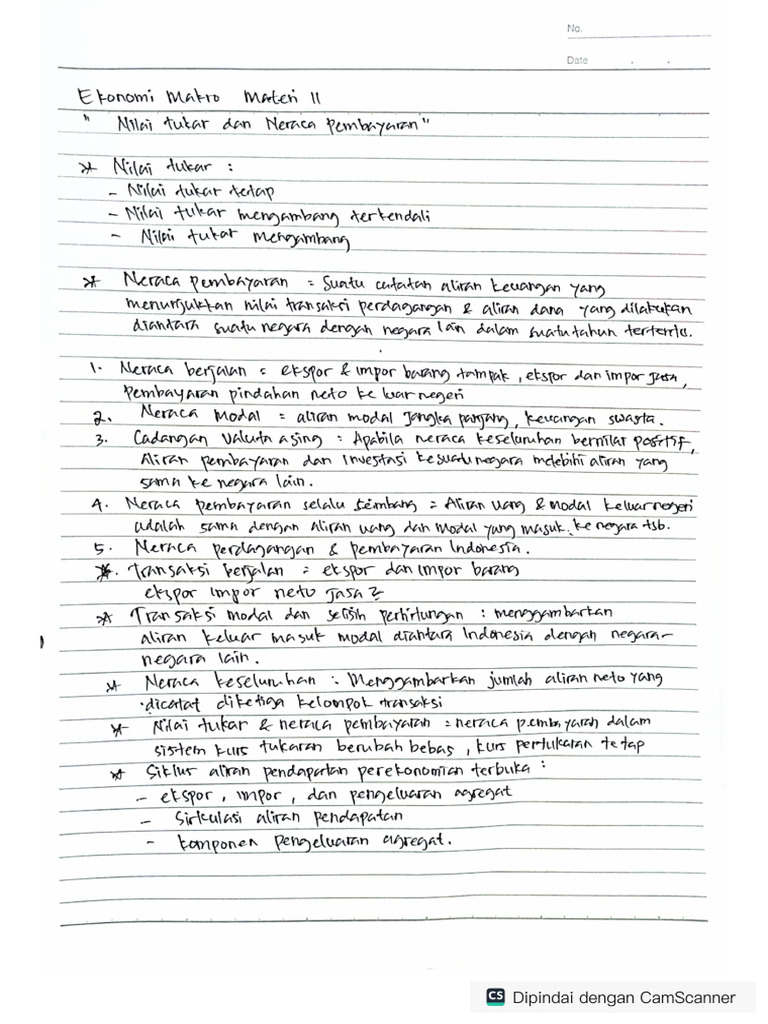 No.
Date
Ekonomi Makro Materi 11
" Nilai tukar dan Neraca Pembayaran"
* Nilai tukar :
- Nilai tukar tetap
- Nilai tukar mengambang terkendali
- Nilai tukar Mengambang
* Neraca pembayaran = Suatu catatan aliran keuangan yang
menunjuktan nilai transaksi perdagangan & aliran dana yang dilakukan
diantara suatu negara dengan negara lain dalam suatu tahun tertentu.
1. Neraca berjalan = ekspor & impor barang tampak, ekspor dan impor jasa,
pembayaran pindahan neto ke luar negeri
2. Neraca Modal = aliran modal jangka panjang, keuangan swasta.
3. Cadangan Valuta asing = Apabila neraca keseluruhan bernilai positif,
Aliran pembayaran dan investasi ke suatu negara melebihi aliran yang
sama ke negara lain.
4. Neraca pembayaran selalu seimbang = Aliran uang & modal keluar negeri
adalah sama dengan aliran uang dan modal yang masuk ke negara tsb.
5. Neraca perdagangan & pembayaran Indonesia.
*. Transaksi berjalan = ekspor dan impor barang
ekspor impor neto jasa 2
* Transaksi modal dan selisih perhitungan : menggambarkan
aliran keluar masuk modal diantara Indonesia dengan negara-
negara lain.
* Neraca keseluruhan : Menggambarkan jumlah aliran neto yang
dicatat diketiga kelompok transaksi
* Nilai tukar & neraca pembayaran = neraca pembayaran dalam
sistem kurs tukaran berubah bebas, kurs pertukaran tetap
* Siklus aliran pendapatan perekonomian terbuka :
- ekspor, impor, dan pengeluaran agregat
- Sirkulasi aliran pendapatan
- komponen pengeluaran agregat.
CS Dipindai dengan CamScanner